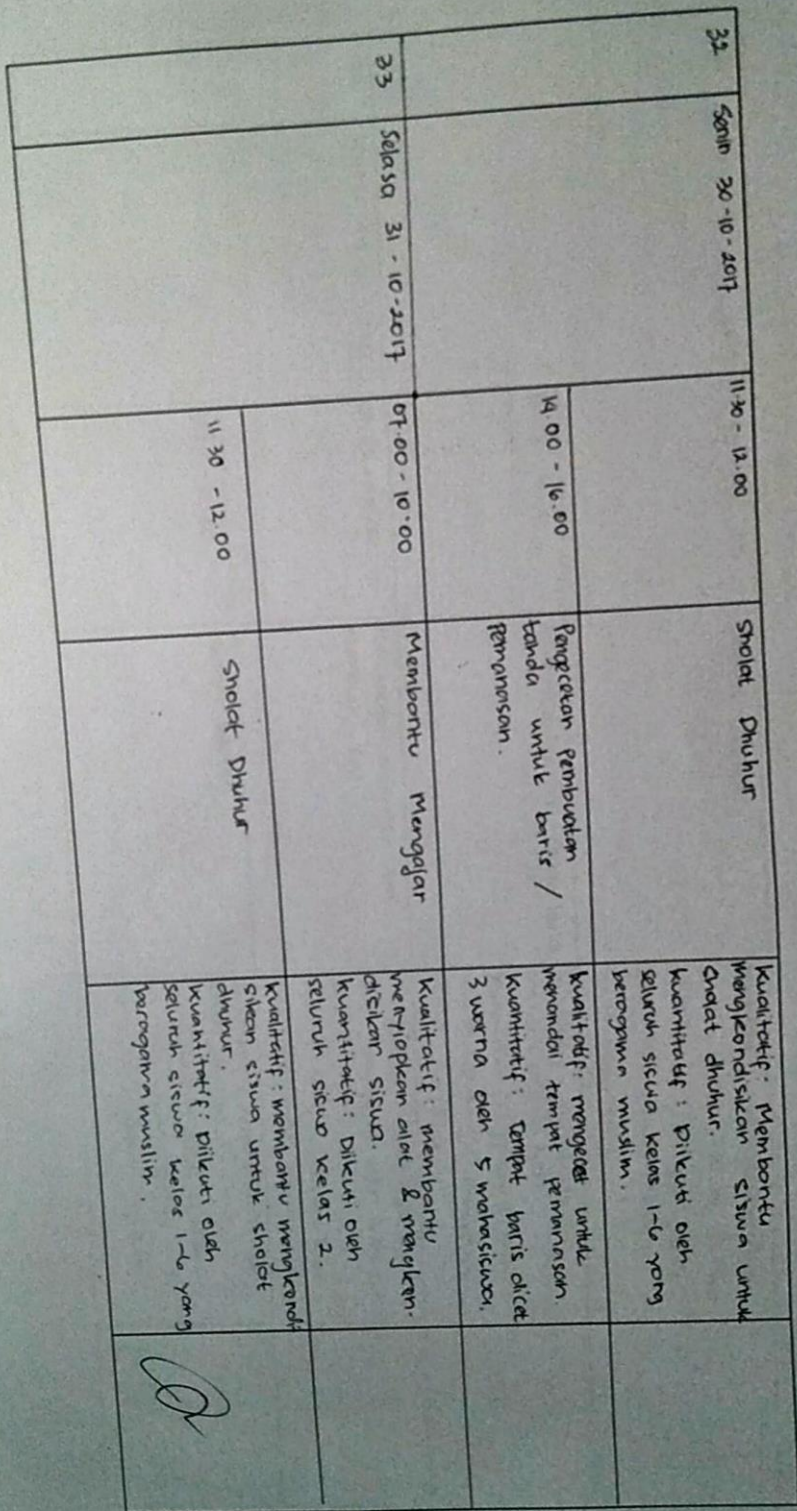 32
Senin 30-10-2017
11.30 - 12.00
Sholat Dhuhur
Kualitatif: Membantu
mengkondisikan siswa untuk
shalat dhuhur.
Kuantitatif: Diikuti oleh
seluruh siswa kelas 1-6 yang
beragama muslim.
14.00 - 16.00
Pengecetan pembuatan
tanda untuk baris /
pemanasan.
Kualitatif: mengecet untuk
menandai tempat pemanasan.
Kuantitatif: Tempat baris dicet
3 warna oleh 5 mahasiswa.
33
Selasa 31-10-2017
07.00 - 10.00
Membantu Mengajar
Kualitatif: membantu
menyiapkan alat & mengkon-
disikan siswa.
Kuantitatif: Diikuti oleh
seluruh siswa kelas 2.
11.30 - 12.00
Sholat Dhuhur
Kualitatif: membantu mengkondi
sikan siswa untuk sholat
dhuhur.
Kuantitatif: Diikuti oleh
seluruh siswa kelas 1-6 yang
beragama muslim.